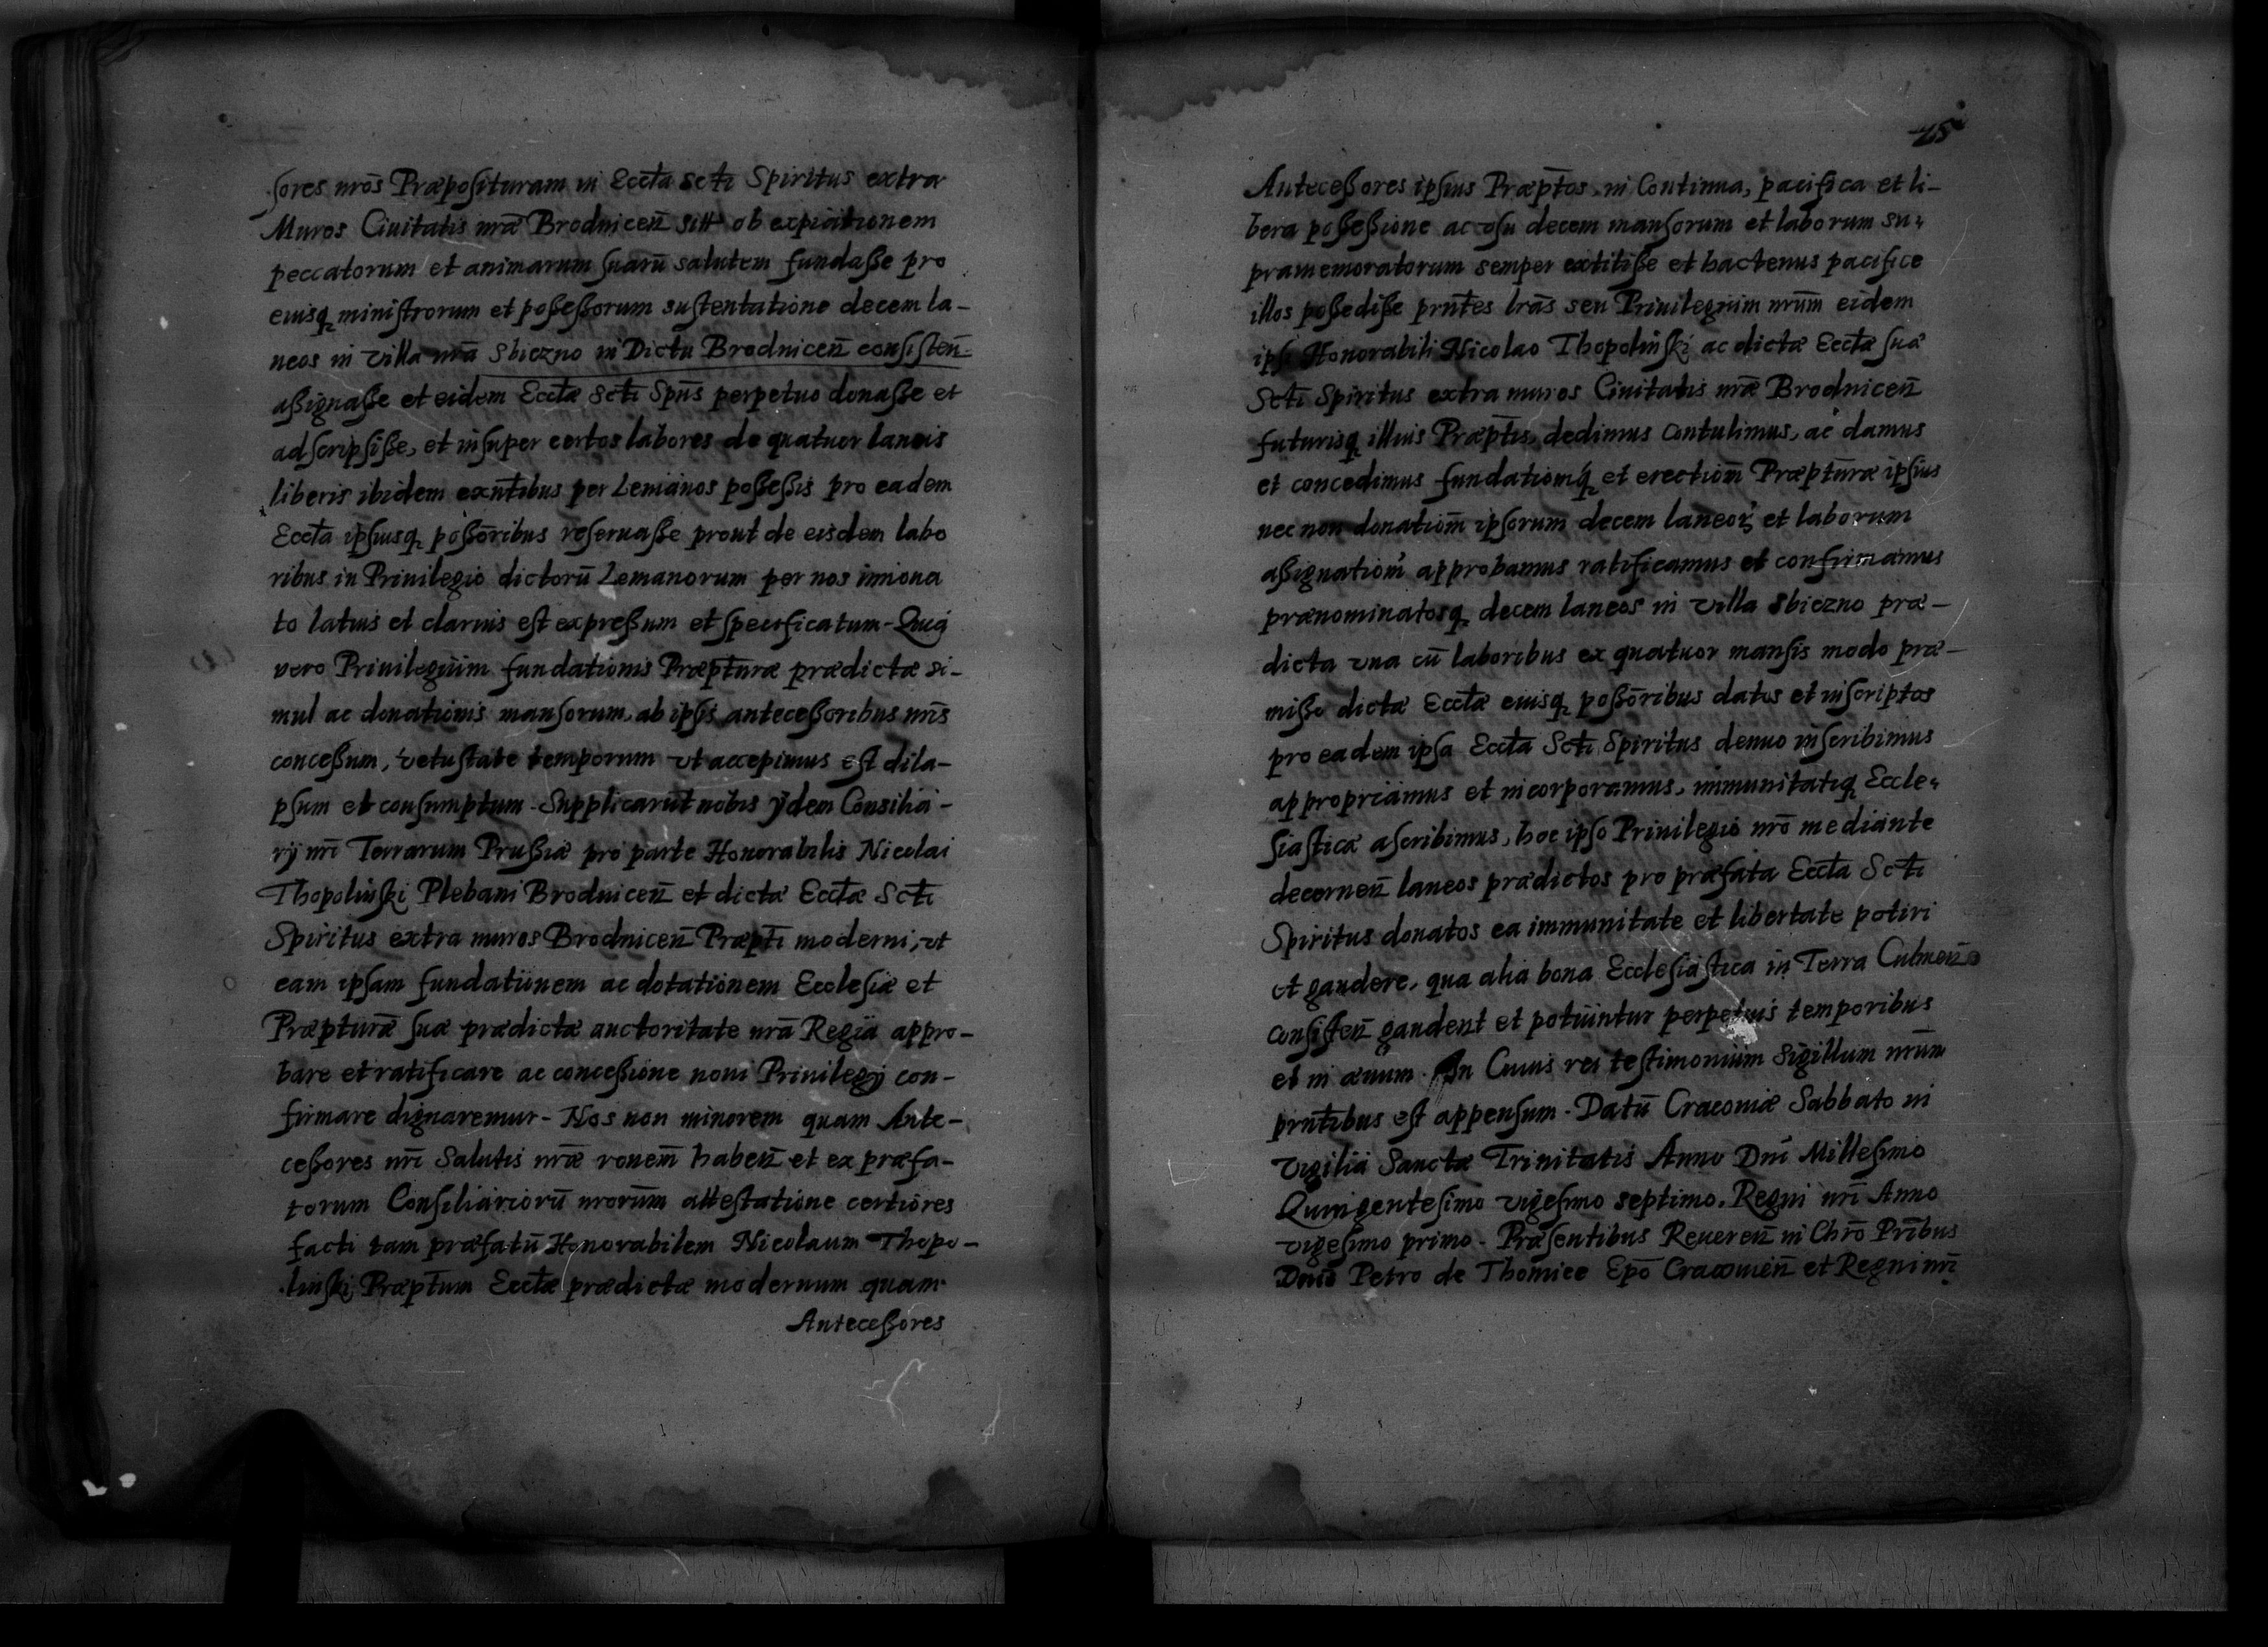 sores nr̄os Præposituram in Eccłā Scti Spiritus extra
Muros Ciuitatis nr̄æ Brodnicen̄ sitt ob expiationem
peccatorum et animarum suarū salutem fundasse pro
eiusq̨ ministrorum et possessorum sustentatione decem la-
neos in villa nr̄a Sbiezno in Dictu Brodnicen̄ consisten̄
assignasse et eidem Eccłæ Scti Sp̄ūs perpetuo donasse et
adscripsisse, et insuper certos labores de quatuor laneis
liberis ibidem exn̄tibus per Lemanos possessis pro eadem
Eccłā ipsiusq̨ possōribus reseruasse prout de eisdem labo
ribus in Priuilegio dictorū Lemanorum per nos innoua
to latius et clarius est expressum et specificatum - Quia
vero Priuilegium fundationis Præpt̄uræ prædictæ si-
mul ac donationis mansorum, ab ipsis antecessoribus nr̄is
concessum, vetustate temporum vt accepimus est dila-
psum et consumptum - Supplicarūt nobis ijdem Consilia-
rij nr̄i Terrarum Prussiæ pro parte Honorabilis Nicolai
Thopolinski Plebani Brodnicen̄ et dictæ Eccłæ Scti
Spiritus extra muros Brodnicen̄ Præpt̄i moderni, vt
eam ipsam fundationem ac dotationem Ecclesiæ et
Præpturæ suæ prædictæ auctoritate nr̄a Regia appro-
bare et ratificare ac concessione noui Priuilegij con-
firmare dignaremur - Nos non minorem quam Ante-
cessores nr̄i Salutis nr̄æ ronem̄ haben̄ et ex præfa-
torum Consiliariorū nrorūm attestatione certiores
facti tam præfatū Honorabilem Nicolaum Thopo-
linski Præpt̄um Eccłæ prædictæ modernum quam
Antecessores
25
Antecessores ipsius Præpt̄os in Continua, pacifica et li-
bera possessione ac vsu decem mansorum et laborum su-
pramemoratorum semper extitisse et hactenus pacifice
illos possedisse prn̄tes lr̄as seu Priuilegium nrūm eidem
ipsi Honorabili Nicolao Thopolinski ac dictæ Eccłæ suæ
Scti Spiritus extra muros Ciuitatis nr̄æ Brodnicen̄
futurisq̨ illius Præpt̄is, dedimus contulimus, ac damus
et concedimus fundationem̄q̨ et erection̄m Præpt̄uræ ipsius
nec non donation̄m ipsorum decem laneoȝ et laborum
assignation̄m approbamus ratificamus et confirmamus
prænominatosq̨ decem laneos in villa Sbiezno præ-
dicta vna cū laboribus ex quatuor mansis modo præ-
misso dictæ Eccłæ eiusq̨ possōribus datos et inscriptos
pro eadem ipsa Eccłā Scti Spiritus denuo inscribimus
appropriamus et incorporamus, immunitatiq̨ Eccle-
siasticæ ascribimus, hoc ipso Priuilegio nrō mediante
decernen̄ laneos prædictos pro præfata Eccłā Scti
Spiritus donatos ea immunitate et libertate potiri
et gaudere, qua alia bona Ecclesiastica in Terra Culmen̄
consisten̄ gaudent et potiuntur perpetuis temporibus
et in æuum. In Cuius rei testimonium Sigillum nrūm
prn̄tibus est appensum - Datū Cracouiæ Sabbato in
Vigilia Sanctæ Trinitatis Anno Dn̄i Millesimo
Quingentesimo vigesimo septimo. Regni nr̄i Anno
vigesimo primo - Præsentibus Reueren̄ in Chrō Prībus
Dn̄is Petro de Thomice Ep̄o Cracouien̄ et Regni nr̄i